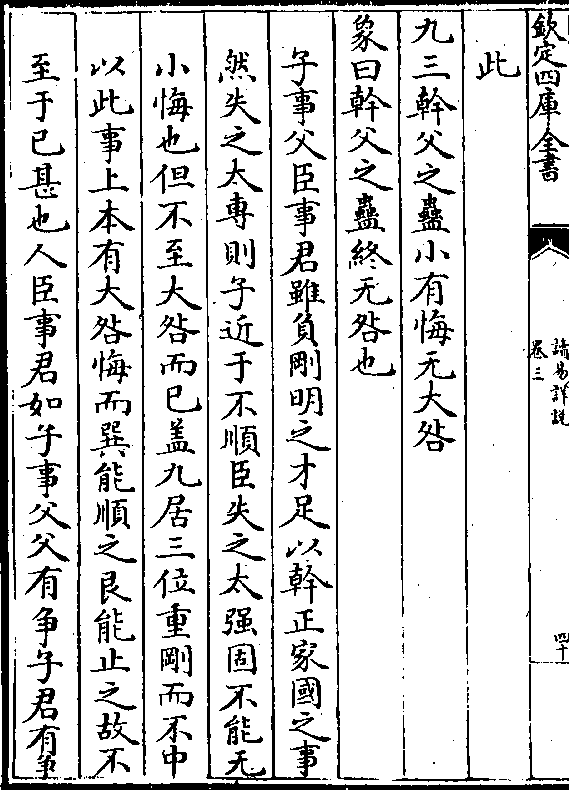 欽定四庫全書
讀易詳說
卷三
四十
此
九三幹父之蠱小有悔无大咎
象曰幹父之蠱終无咎也
子事父臣事君雖負剛明之才足以幹正家國之事
然失之太專則子近于不順臣失之太强固不能无
小悔也但不至大咎而已蓋九居三位重剛而不中
以此事上本有大咎悔而巽能順之艮能止之故不
至于已甚也人臣事君如子事父父有争子君有争